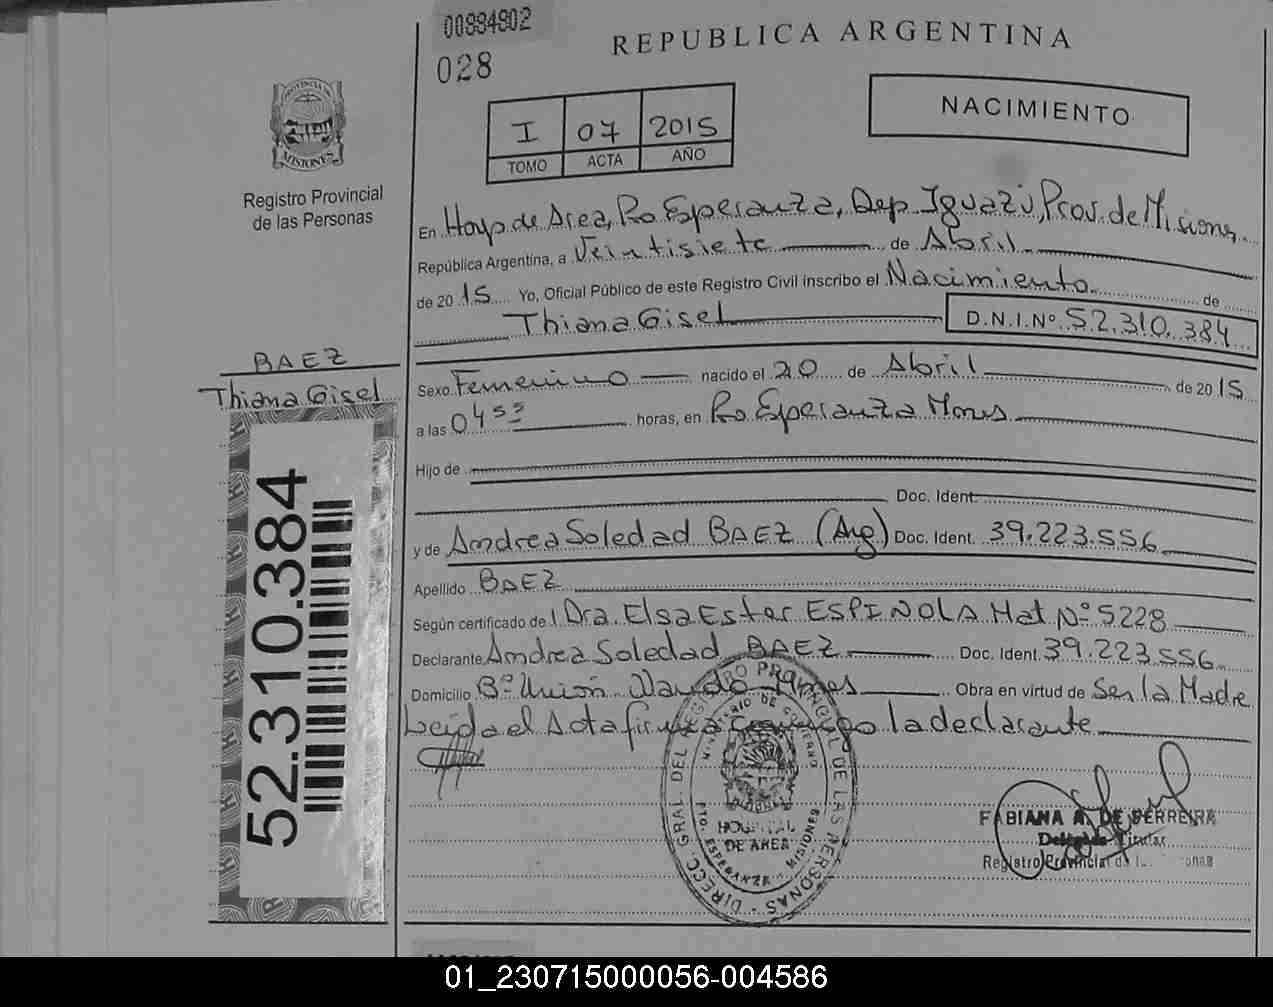 00884802
028
REPUBLICA ARGENTINA
NACIMIENTO
I 07 2015
TOMO ACTA AÑO
PROVINCIA DE
MISIONES
Registro Provincial
de las Personas
En Hosp de Area, Pto Esperanza, Dep. Iguazú, Prov. de Misiones
República Argentina, a Veintisiete de Abril
de 2015 Yo, Oficial Público de este Registro Civil inscribo el Nacimiento de
Thiana Gisel D.N.I.Nº 52.310.384
BAEZ
Thiana Gisel
52.310.384
Sexo Femenino nacido el 20 de Abril de 2015
a las 04 55 horas, en Pto Esperanza Mnes
Hijo de
Doc. Ident.
y de Andrea Soledad BAEZ (Arg) Doc. Ident. 39.223.556
Apellido BAEZ
Según certificado de Dra. Elsa Ester ESPINOLA Mat Nº 5228
Declarante Andrea Soledad BAEZ Doc. Ident. 39.223.556
Domicilio Bº Unión Mnes Obra en virtud de Ser la Madre
Leida el Acta firma conmigo la declarante
DIRECC. GRAL. DEL REGISTRO PROVINCIAL DE LAS PERSONAS
MINISTERIO DE GOBIERNO
MISIONES
HOSPITAL
DE AREA
PTO. ESPERANZA - MISIONES
FABIANA A. DE FERREIRA
Delegada Titular
Registro Provincial de
01_230715000056-004586